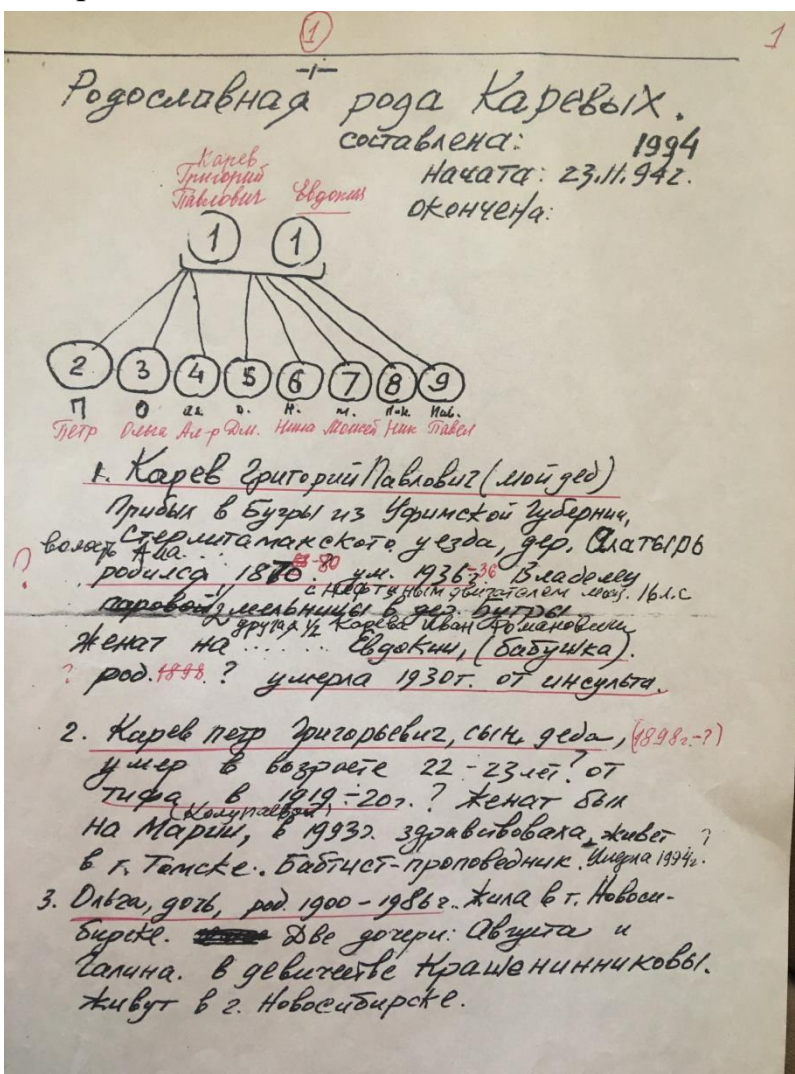 1 1
-1-
Родославная рода Каревых.
составлена: 1994
Начата: 23.11.94г.
окончена:
Карев
Григорий
Павлович Евдокия
1 1
2 3 4 5 6 7 8 9
П О Ал. Д. Н. М. Ник. Пав.
Петр Ольга Ал-р Дм. Нина Моисей Ник Павел
1. Карев Григорий Павлович (мой дед)
Прибыл в Бугры из Уфимской Губернии,
Стерлитамакского уезда, дер. Алатырь
волость Ала....
? родился 1870-80? ум. 1936г.-36 Владелец
с нефтяным двигателем мощ. 16 л.с
паровой 1/2 мельницы в дер. Бугры
другая 1/2 Карева Иван Романович
женат на ...... Евдокии, (бабушка).
? род. 1898. ? умерла 1930г. от инсульта.
2. Карев петр Григорьевич, сын деда, (1898г.-?)
умер в возрасте 22-23 лет? от
тифа в 1919÷20г. ? женат был
(Колупаевой)
на Марии, в 1993г. здравствовала, живет ?
в г. Томске. Баптист-проповедник. Умерла 1994г.
3. Ольга, дочь, род. 1900-1986г. Жила в г. Новоси-
бирске. Две дочери: Августа и
Галина. в девичестве Крашенинниковы.
живут в г. Новосибирске.